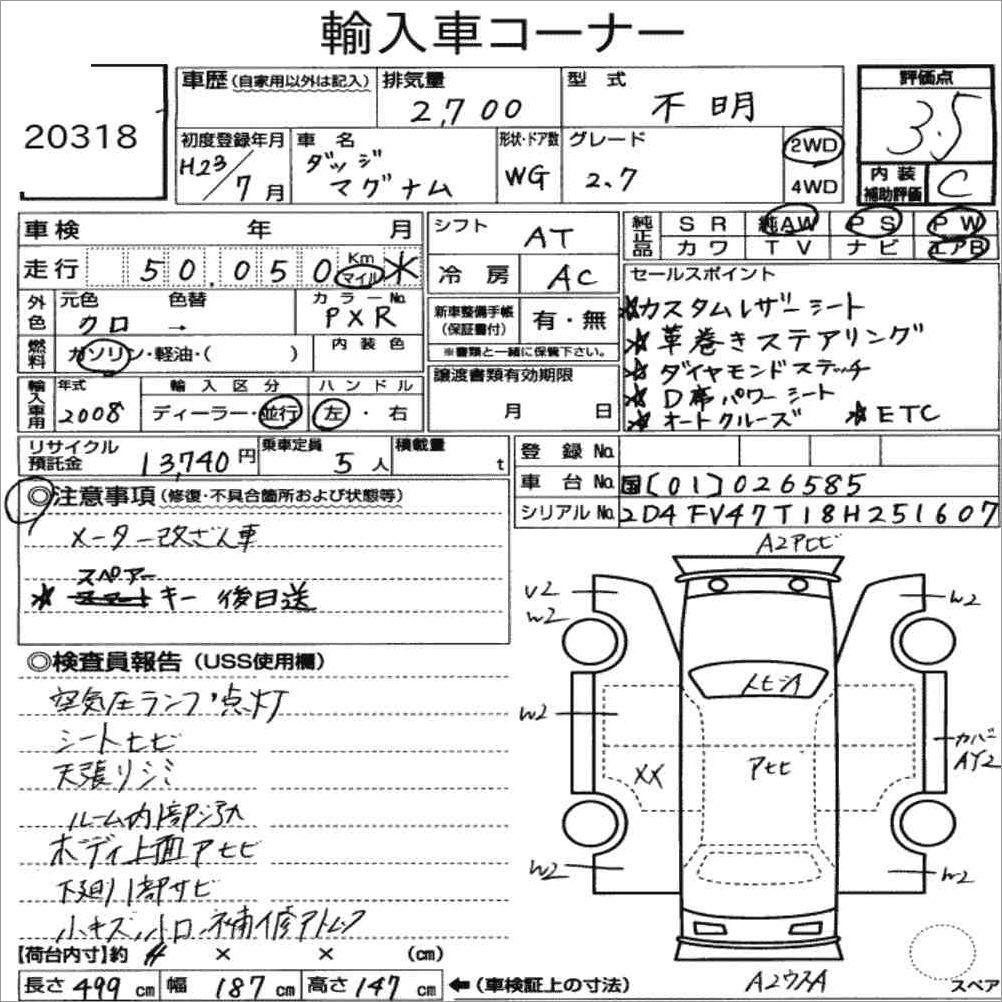 輸入車コーナー
20318
車歴(自家用以外は記入) 排気量 2,700 型式 不明
評価点 3.5
初度登録年月 H23/7月 車名 ダッジ マグナム 形状・ドア数 WG グレード 2.7 2WD 4WD
内装補助評価 C
車検 年 月
走行 50,050 Km マイル ＊
シフト AT
冷房 AC
純正品 SR 純AW PS PW
カワ TV ナビ エアB
外色 元色 クロ 色替 → カラーNo. PXR
燃料 ガソリン・軽油・( ) 内装色
新車整備手帳(保証書付) 有・無
※書類と一緒に保管下さい。
譲渡書類有効期限
月 日
セールスポイント
☆カスタムレザーシート
☆革巻きステアリング
☆ダイヤモンドステッチ
☆D席パワーシート
☆オートクルーズ ☆ETC
輸入車用 年式 2008 輸入区分 ディーラー・並行 ハンドル 左・右
リサイクル預託金 13,740円 乗車定員 5人 積載量 t
登録No.
車台No. 国[01]026585
シリアルNo. 2D4FV47T18H251607
◎注意事項(修復・不具合箇所および状態等)
メーター改ざん車
スペアー
☆キー 後日送
◎検査員報告(USS使用欄)
空気圧ランプ点灯
シートヒビ
天張りシミ
ルーム内1部
ボディ上面アセビ
下廻り1部サビ
小キズ,小凹,補修アトレ
A2アヒビ
U2
W2
W2
W2
XX
アセビ
カバー
AY2
W2
W2
【荷台内寸】約 × × (cm)
長さ 499 cm 幅 187 cm 高さ 147 cm ←(車検証上の寸法)
スペア